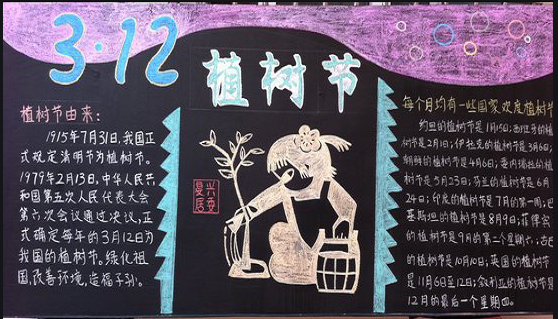 3·12
植树节
植树节由来:
1915年7月31日,我国正
式规定清明节为植树节。
1979年2月13日,中华人民共
和国第五次人民代表大会
第六次会议通过决议,正
式确定每年的3月12日为
我国的植树节。绿化祖
国,改善环境,造福子孙。
每个月均有一些国家欢度植树节
约旦的植树节是1月15日;西班牙的植
树节是2月1日;伊拉克的植树节是3月6日;
朝鲜的植树节是4月6日;委内瑞拉的植
树节是5月23日;芬兰的植树节是6月
24日;印度的植树节是7月的第一周;巴
基斯坦的植树节是8月9日;菲律宾
的植树节是9月的第二个星期六;古巴
的植树节是10月10日;英国的植树节
是11月6日至12日;叙利亚的植树节是
12月的最后一个星期四。